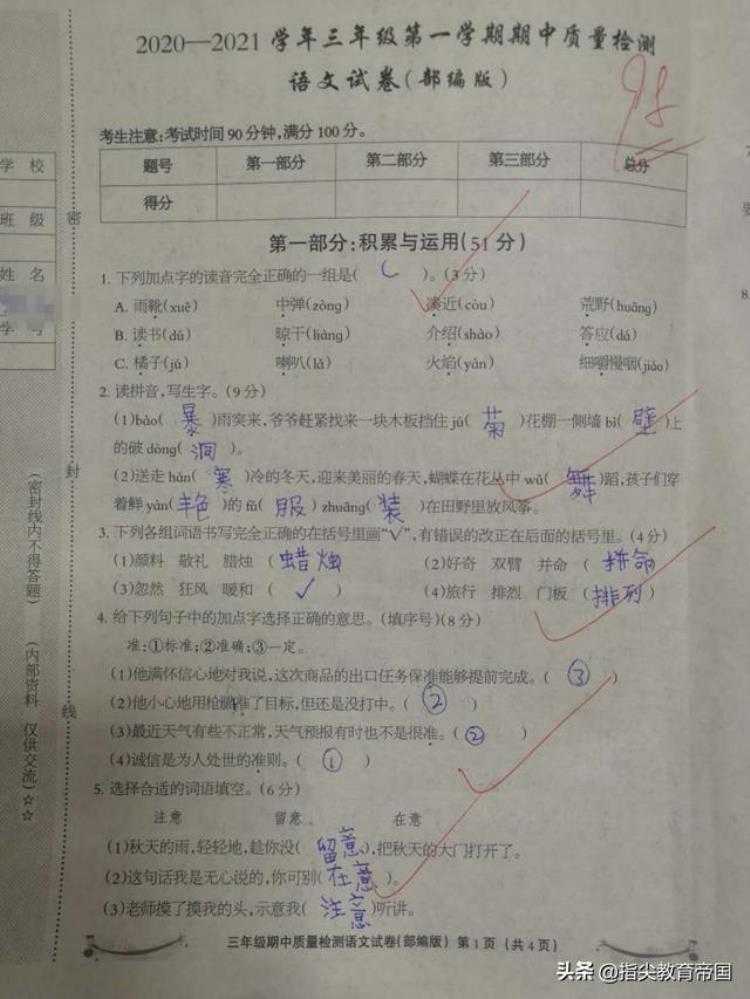 2020—2021 学年三年级第一学期期中质量检测
语文试卷(部编版)
98
考生注意:考试时间 90 分钟,满分 100 分。
题号 第一部分 第二部分 第三部分 总分
得分
学 校
班 级
姓 名
学 号
密
封
线
(密封线内不得答题)
(内部资料 仅供交流)☆☆
第一部分:积累与运用(51 分)
1. 下列加点字的读音完全正确的一组是( C )。(3 分)
A. 雨靴(xuē) 中弹(zòng) 凑近(còu) 荒野(huāng)
B. 读书(dú) 晾干(liàng) 介绍(shào) 答应(dá)
C. 橘子(jú) 喇叭(lǎ) 火焰(yàn) 细嚼慢咽(jiáo)
2. 读拼音,写生字。(9 分)
(1)bào( 暴 )雨突来,爷爷赶紧找来一块木板挡住 jú( 菊 )花棚一侧墙 bì( 壁 )上
的破 dòng( 洞 )。
(2)送走 hán( 寒 )冷的冬天,迎来美丽的春天,蝴蝶在花丛中 wǔ( 舞 )蹈,孩子们穿
着鲜 yàn( 艳 )的 fú( 服 ) zhuāng( 装 )在田野里放风筝。
3. 下列各组词语书写完全正确的在括号里画“√”,有错误的改正在后面的括号里。(4 分)
(1)颜料 敬礼 腊烛 ( 蜡烛 ) (2)好奇 双臂 并命 ( 拼命 )
(3)忽然 狂风 暖和 ( √ ) (4)旅行 排烈 门板 ( 排列 )
4. 给下列句子中的加点字选择正确的意思。(填序号)(8 分)
准:①标准;②准确;③一定。
(1)他满怀信心地对我说,这次商品的出口任务保准能够提前完成。( ③ )
(2)他小心地用枪瞄准了目标,但还是没打中。( ② )
(3)最近天气有些不正常,天气预报有时也不是很准。( ② )
(4)诚信是为人处世的准则。( ① )
5. 选择合适的词语填空。(6 分)
注意 留意 在意
(1)秋天的雨,轻轻地,趁你没( 留意 ),把秋天的大门打开了。
(2)这句话我是无心说的,你可别( 在意 )。
(3)老师摸了摸我的头,示意我( 注意 )听讲。
三年级期中质量检测语文试卷(部编版) 第 1 页 (共 4 页)
头条 @指尖教育帝国